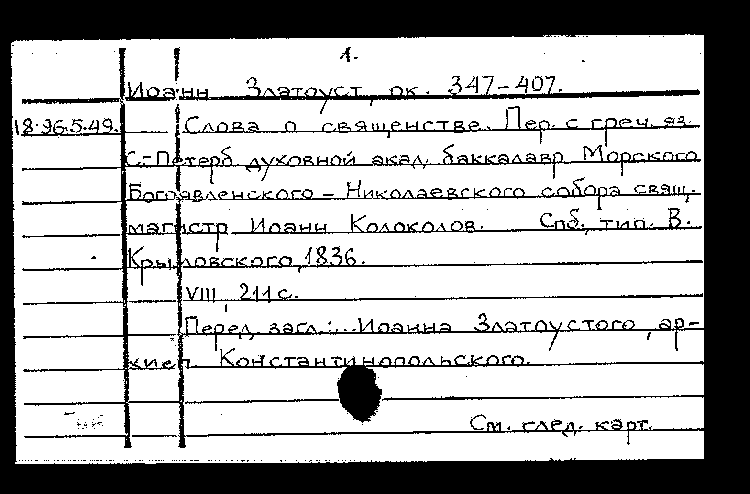 1.
Иоанн Златоуст, ок. 347-407.
18.96.5.49. Слова о священстве. Пер. с греч. яз.
С.-Петерб. духовной акад. баккалавр Морского
Богоявленского - Николаевского собора свящ.
магистр Иоанн Колоколов. Спб., тип. В.
Крыловского, 1836.
VIII, 211 с.
Перед загл.: Иоанна Златоустого, ар-
хиеп. Константинопольского.
См. след. карт.